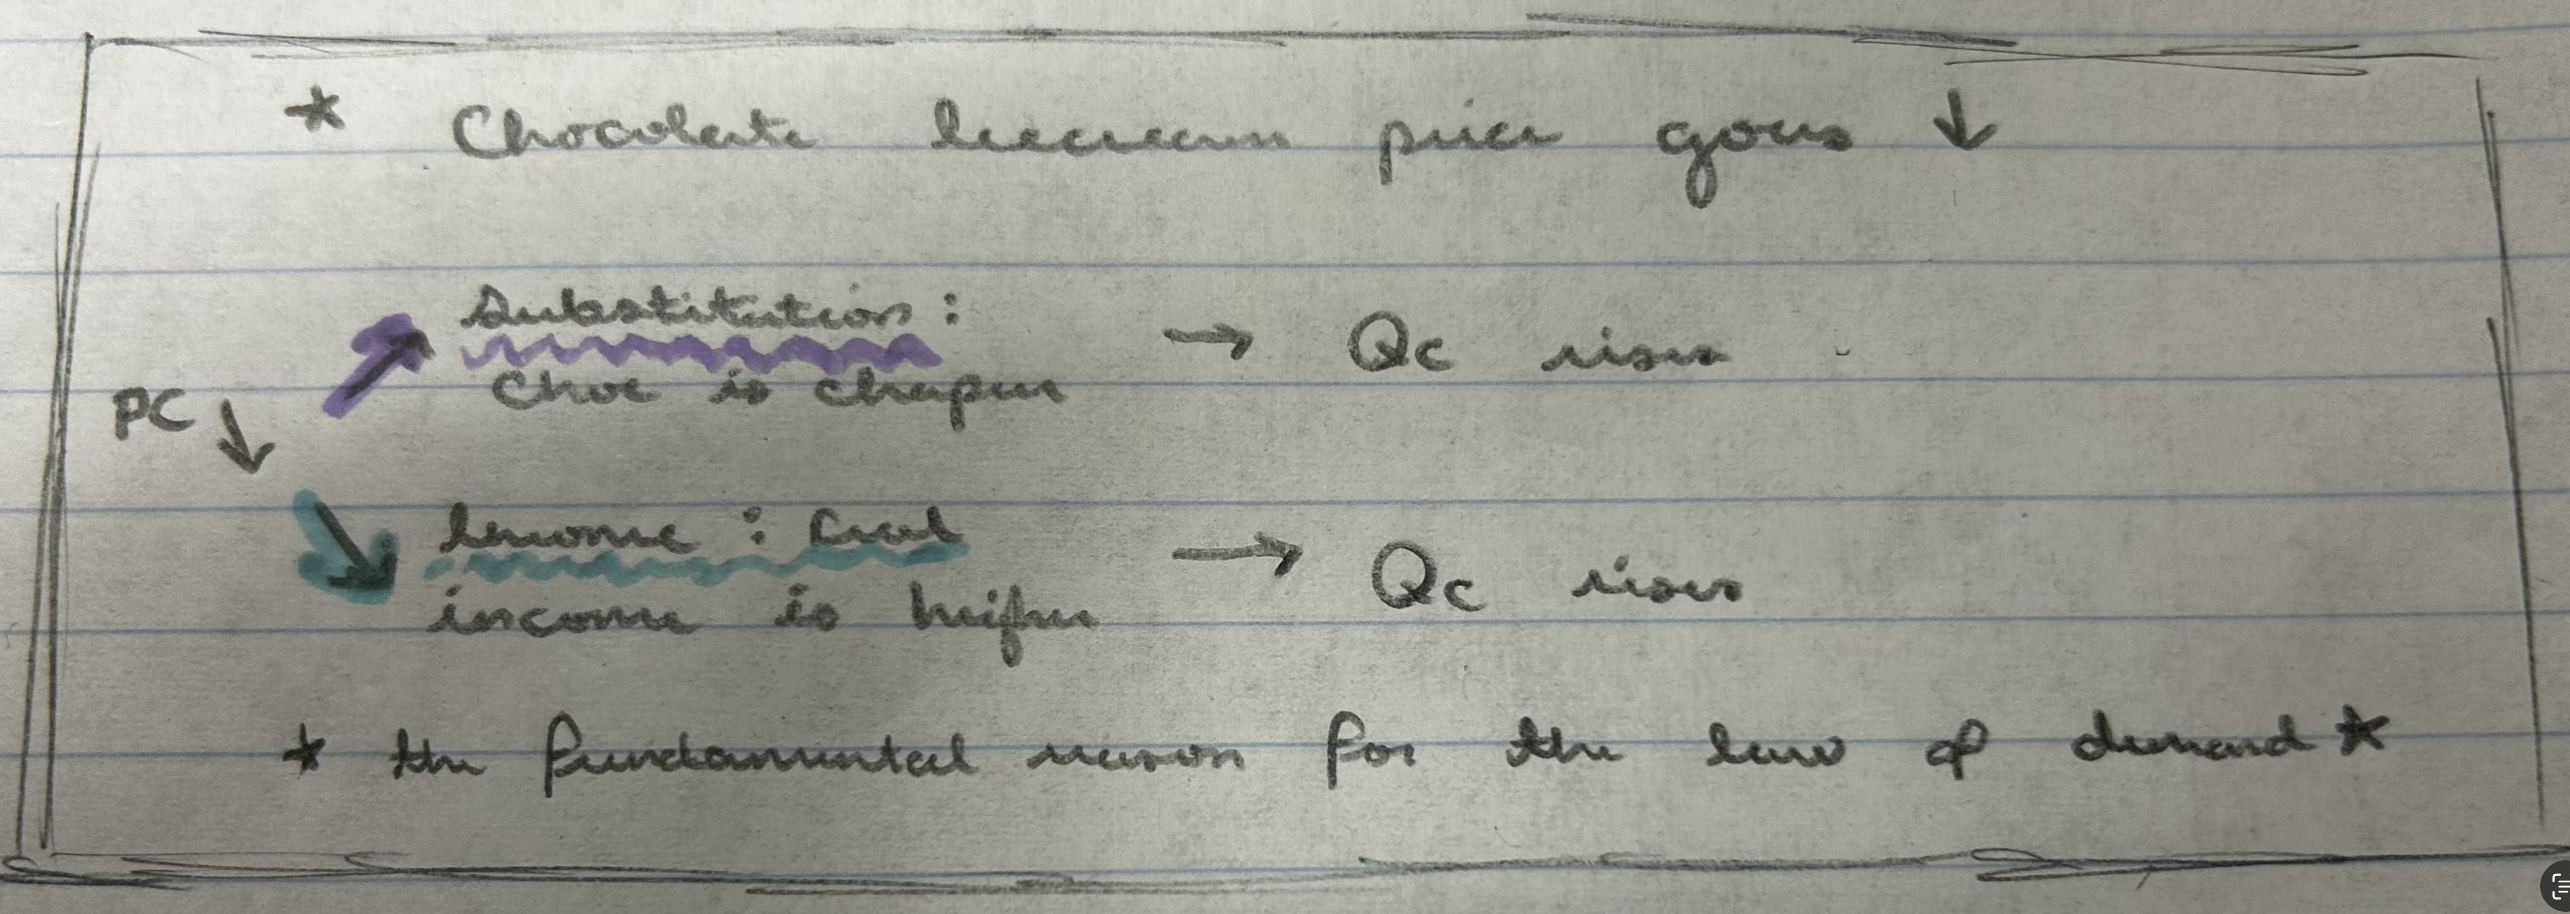 * Chocolate icecream price goes ↓
Substitution :
Choc is cheaper → Qc rises
PC ↓
Income : Real
income is higher → Qc rises
* the fundamental reason for the law of demand *